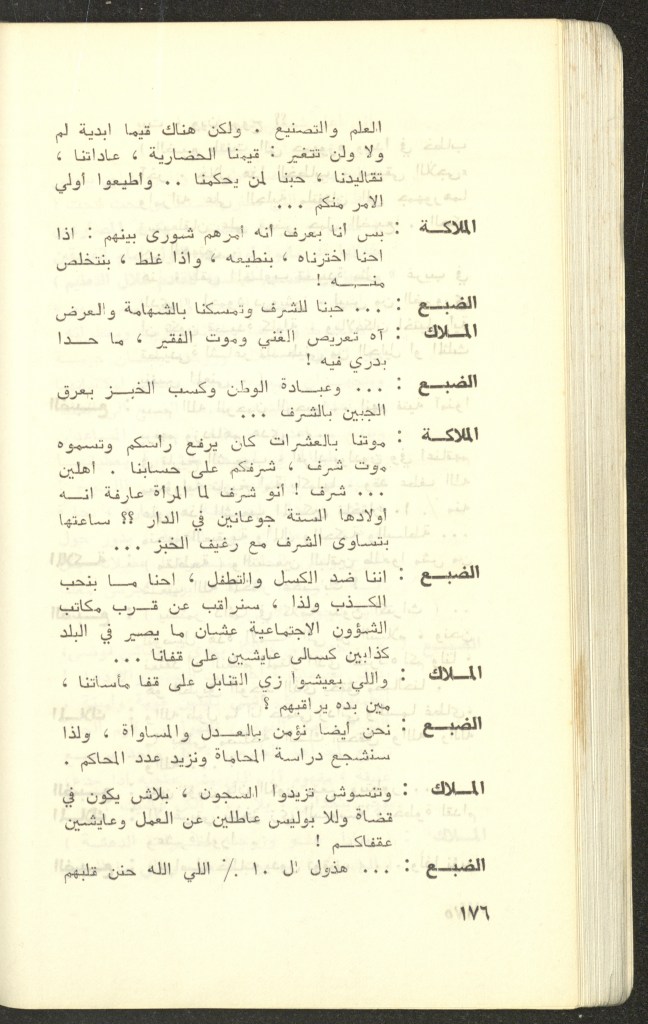 العلم والتصنيع . ولكن هناك قيما ابدية لم
ولا ولن تتغير : قيمنا الحضارية ، عاداتنا ،
تقاليدنا ، حبنا لمن يحكمنا .. وأطيعوا أولي
الامر منكم ...
الملاكة : بس أنا بعرف أنه امرهم شورى بينهم : اذا
احنا اخترناه ، بنطيعه ، واذا غلط ، بنتخلص
منه !
الضبع : ... حبنا للشرف وتمسكنا بالشهامة والعرض
الملاك : آه تعريص الغني وموت الفقير ، ما حدا
بدري فيه !
الضبع : ... وعبادة الوطن وكسب الخبز بعرق
الجبين بالشرف ...
الملاكة : موتنا بالعشرات كان يرفع رأسكم وتسموه
موت شرف ، شرفكم على حسابنا . اهلين
... شرف ! أنو شرف لما المرأة عارفة انه
أولادها الستة جوعانين في الدار ؟؟ ساعتها
بتساوى الشرف مع رغيف الخبز ...
الضبع : اننا ضد الكسل والتطفل ، احنا ما بنحب
الكذب ولذا ، سنراقب عن قرب مكاتب
الشؤون الاجتماعية عشان ما يصير في البلد
كذابين كسالى عايشين على قفانا ...
الملاك : واللي بعيشوا زي التنابل على قفا مأساتنا ،
مين بده يراقبهم ؟
الضبع : نحن أيضا نؤمن بالعدل والمساواة ، ولذا
سنشجع دراسة المحاماة ونزيد عدد المحاكم .
الملاك : وتنسوش تزيدوا السجون ، بلاش يكون في
قضاة وللا بوليس عاطلين عن العمل وعايشين
عقفاكم !
الضبع : ... هذول ال ١٠ ٪ اللي الله حنن قلبهم
١٧٦